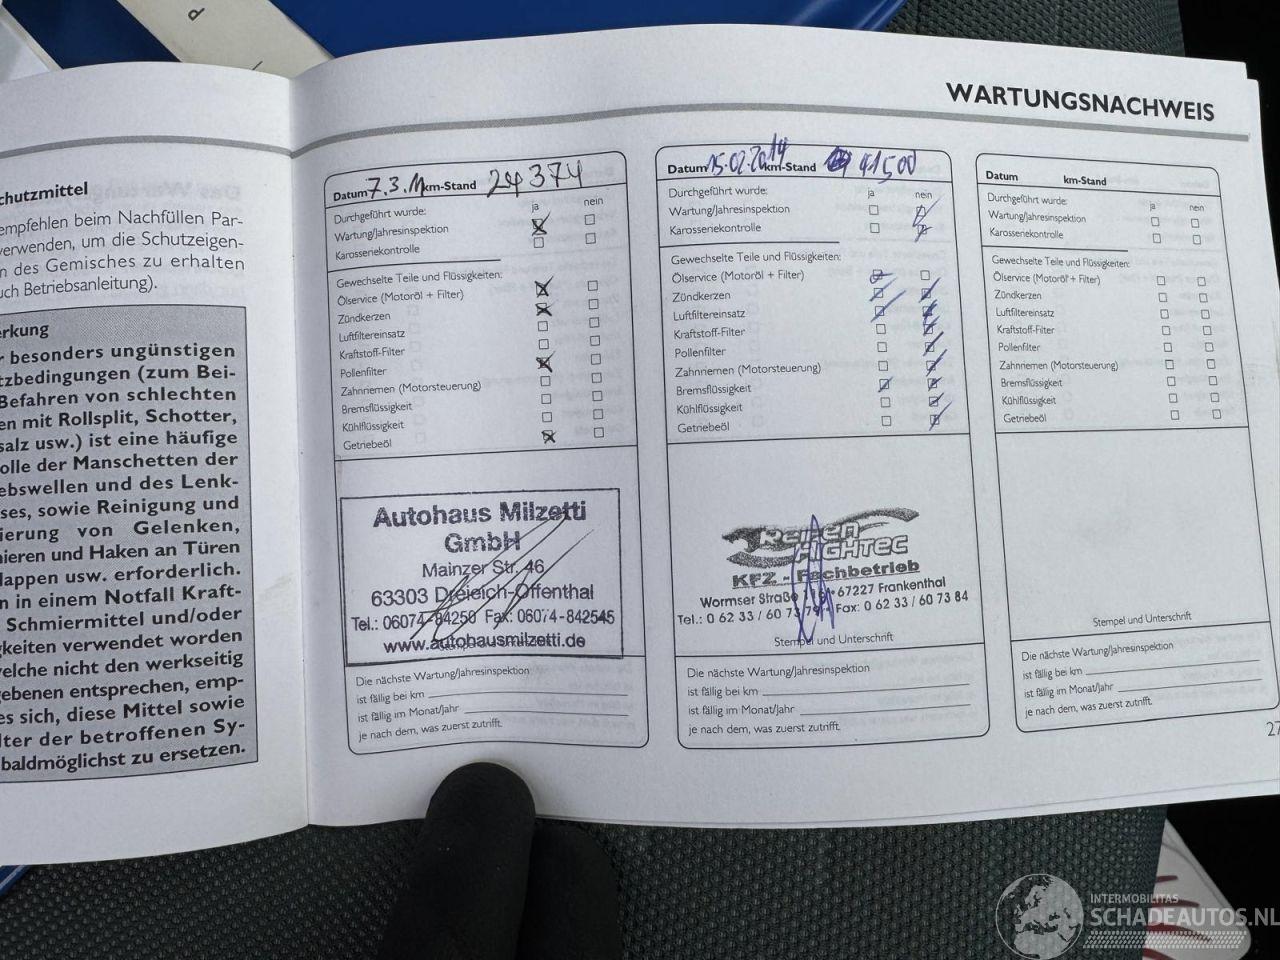 WARTUNGSNACHWEIS
chutzmittel
empfehlen beim Nachfüllen Par-
verwenden, um die Schutzeigen-
n des Gemisches zu erhalten
uch Betriebsanleitung).
erkung
r besonders ungünstigen
tzbedingungen (zum Bei-
Befahren von schlechten
en mit Rollsplit, Schotter,
salz usw.) ist eine häufige
olle der Manschetten der
ebswellen und des Lenk-
ses, sowie Reinigung und
ierung von Gelenken,
nieren und Haken an Türen
lappen usw. erforderlich.
n in einem Notfall Kraft-
Schmiermittel und/oder
gkeiten verwendet worden
velche nicht den werkseitig
gebenen entsprechen, emp-
es sich, diese Mittel sowie
lter der betroffenen Sy-
baldmöglichst zu ersetzen.
Datum 7.3.11 km-Stand 24 374
Durchgeführt wurde: ja nein
Wartung/Jahresinspektion
Karosseriekontrolle
Gewechselte Teile und Flüssigkeiten:
Ölservice (Motoröl + Filter)
Zündkerzen
Luftfiltereinsatz
Kraftstoff-Filter
Pollenfilter
Zahnriemen (Motorsteuerung)
Bremsflüssigkeit
Kühlflüssigkeit
Getriebeöl
Autohaus Milzetti
GmbH
Mainzer Str. 46
63303 Dreieich-Offenthal
Tel.: 06074-84250 Fax: 06074-842545
www.autohausmilzetti.de
Die nächste Wartung/Jahresinspektion
ist fällig bei km
ist fällig im Monat/Jahr
je nach dem, was zuerst zutrifft.
Datum 15.02.2014 km-Stand 41500
Durchgeführt wurde: ja nein
Wartung/Jahresinspektion
Karosseriekontrolle
Gewechselte Teile und Flüssigkeiten:
Ölservice (Motoröl + Filter)
Zündkerzen
Luftfiltereinsatz
Kraftstoff-Filter
Pollenfilter
Zahnriemen (Motorsteuerung)
Bremsflüssigkeit
Kühlflüssigkeit
Getriebeöl
REIFEN
HIGHTEC
KFZ - Fachbetrieb
Wormser Straße 67227 Frankenthal
Tel.: 0 62 33 / 60 73 Fax: 0 62 33 / 60 73 84
Stempel und Unterschrift
Die nächste Wartung/Jahresinspektion
ist fällig bei km
ist fällig im Monat/Jahr
je nach dem, was zuerst zutrifft.
Datum km-Stand
Durchgeführt wurde: ja nein
Wartung/Jahresinspektion
Karosseriekontrolle
Gewechselte Teile und Flüssigkeiten:
Ölservice (Motoröl + Filter)
Zündkerzen
Luftfiltereinsatz
Kraftstoff-Filter
Pollenfilter
Zahnriemen (Motorsteuerung)
Bremsflüssigkeit
Kühlflüssigkeit
Getriebeöl
Stempel und Unterschrift
Die nächste Wartung/Jahresinspektion
ist fällig bei km
ist fällig im Monat/Jahr
je nach dem, was zuerst zutrifft.
27
INTERMOBILITAS
SCHADEAUTOS.NL